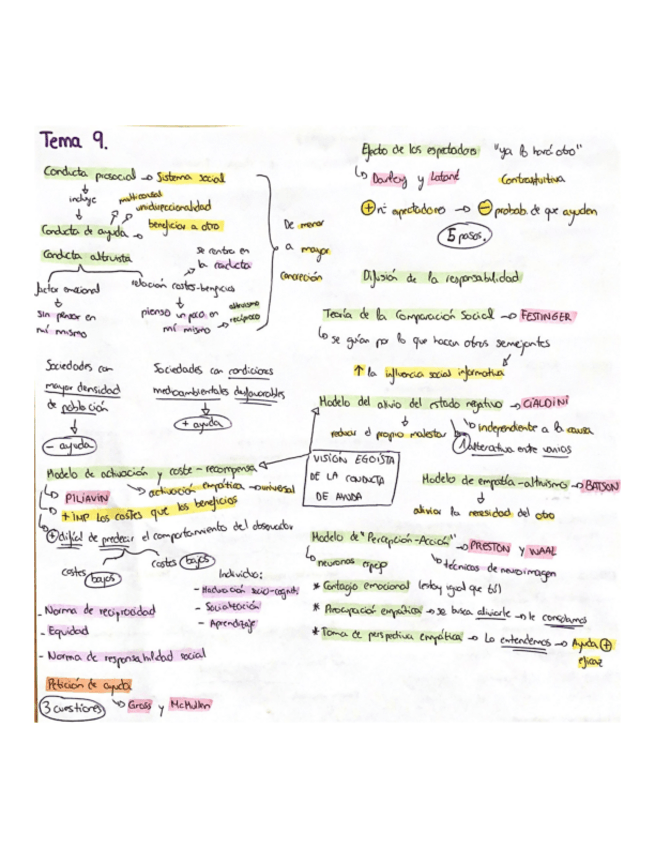 Tema 9.
Conducta prosocial → Sistema social
incluye
multicausal
unidireccionalidad
Conducta de ayuda → beneficios a otro
Conducta altruista
se centra en
la conducta
De menor
a mayor
concreción
factor emocional
relación costes-beneficios
sin pensar en
mí mismo
pienso un poco en
mí mismo
altruismo
recíproco
Sociedades con
mayor densidad
de población
- ayuda
Sociedades con condiciones
medioambientales desfavorables
+ ayuda
Modelo de activación y coste-recompensa
PILIAVIN
activación empática → universal
+ IMP los costes que los beneficios
+ difícil de predecir el comportamiento del observador
costes bajos
costes bajos
Individuo:
- Maduración socio-cognit.
- Socialización
- Aprendizaje
- Norma de reciprocidad
- Equidad
- Norma de responsabilidad social
Petición de ayuda
3 cuestiones → Gross y McMullen
Efecto de los espectadores "ya lo hará otro"
Darley y Latané
Contraintuitiva
+ nº espectadores → - probab. de que ayuden
5 pasos.
Difusión de la responsabilidad
Teoría de la Comparación Social → FESTINGER
se guían por lo que hacen otros semejantes
↑ la influencia social informativa
Modelo del alivio del estado negativo → CIALDINI
reducir el propio malestar
independiente a la causa
1 alternativa entre varias
VISIÓN EGOÍSTA
DE LA CONDUCTA
DE AYUDA
Modelo de empatía-altruismo → BATSON
aliviar la necesidad del otro
Modelo de "Percepción-Acción" → PRESTON y WAAL
neuronas espejo
técnicas de neuroimagen
* Contagio emocional (estoy igual que tú)
* Preocupación empática → se busca aliviarle → le consolamos
* Toma de perspectiva empática → Lo entendemos → Ayuda +
eficaz